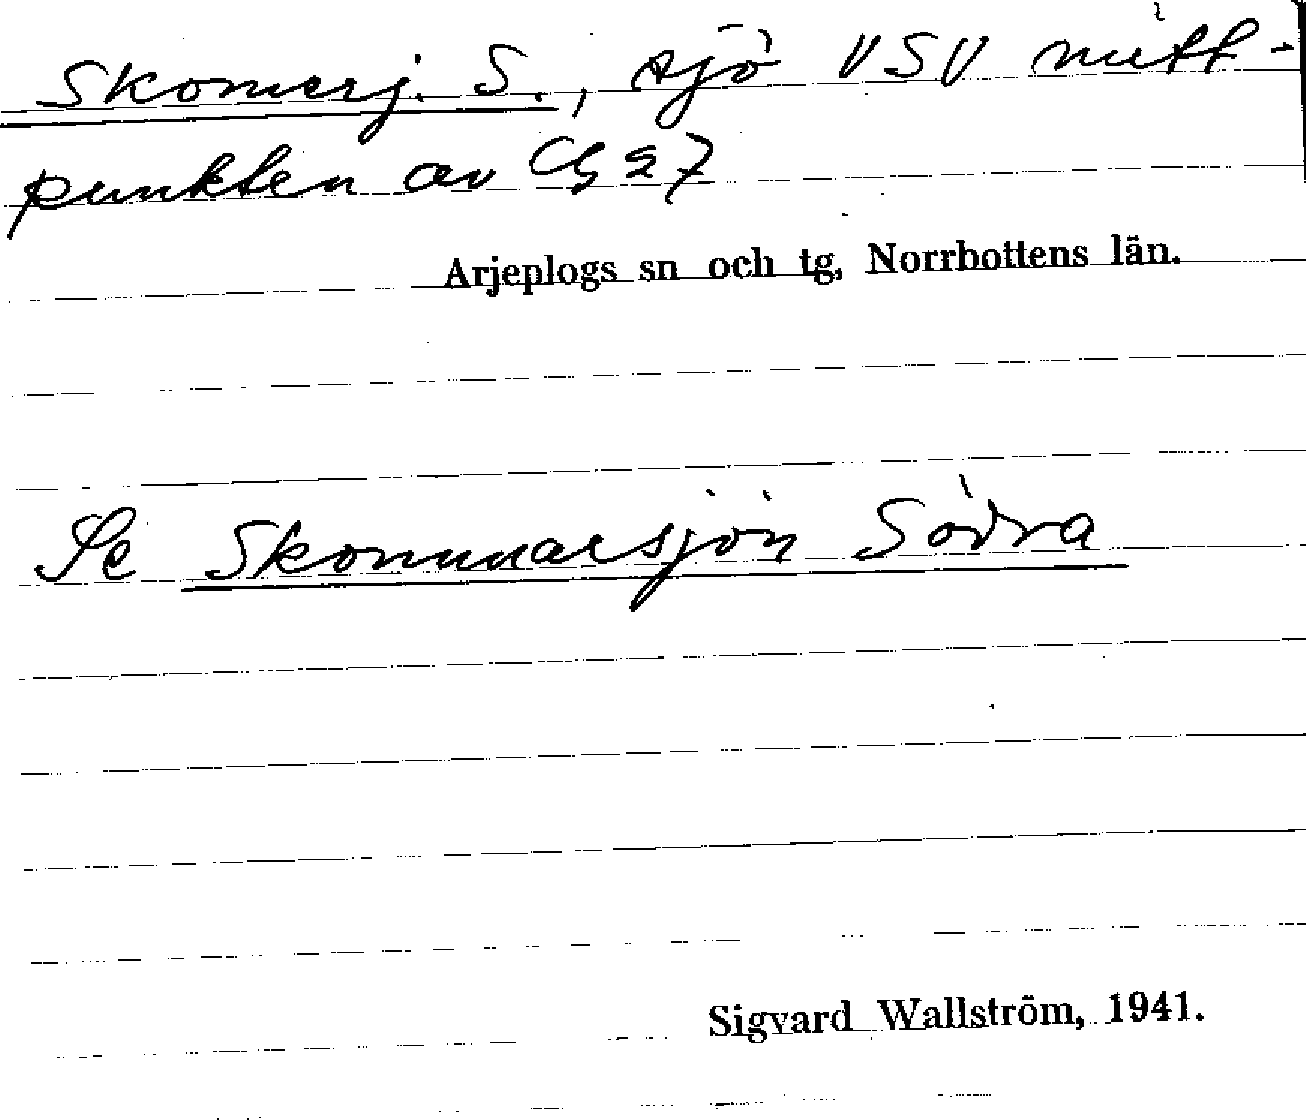 Skomerj. S., sjö VSV mitt-
punkten av Cg 27
Arjeplogs sn och tg, Norrbottens län.
Se Skommarsjön Södra
Sigvard Wallström, 1941.